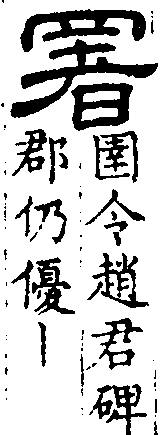 署
圉令趙君碑
郡仍優丨